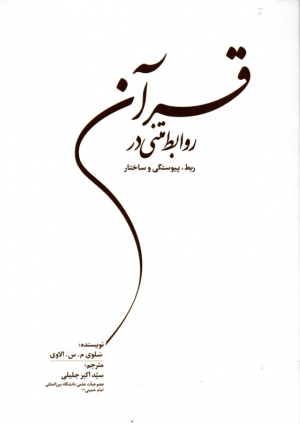 قرآن
روابط متنی در
ربط، پیوستگی و ساختار
نویسنده:
سَلوی م. س. الاوی
مترجم:
سیّد اکبر جلیلی
عضو هیأت علمی دانشگاه بین‌المللی
امام خمینی